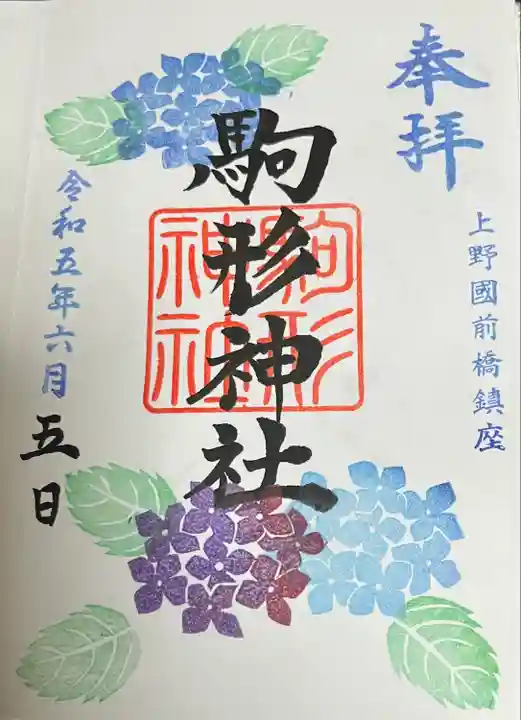 奉拝
上野國前橋鎮座
駒形神社
駒形
神社
令和五年六月五日